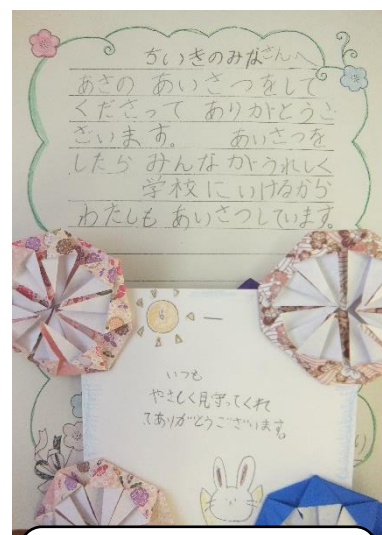 ちいきのみなさんへ
あさの あいさつをして
くださって ありがとうご
ざいます。 あいさつを
したら みんながうれしく
学校に いけるから
わたしも あいさつしています。
いつも
やさしく見守ってくれ
てありがとうございます。